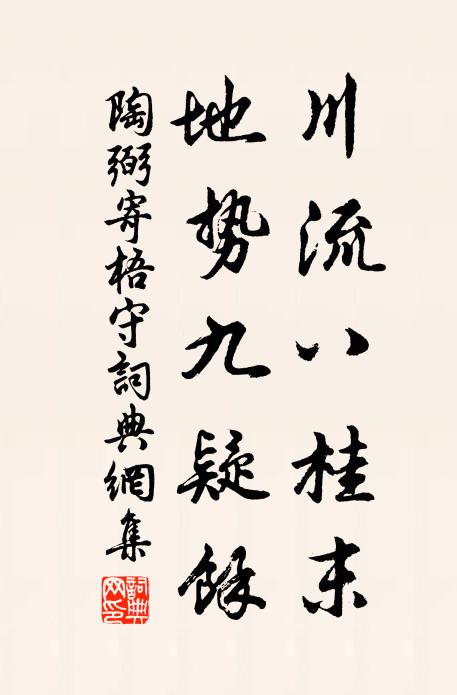 川流八桂末
地势九疑餘
陶弼寄梧守詞典網集
詞典網印